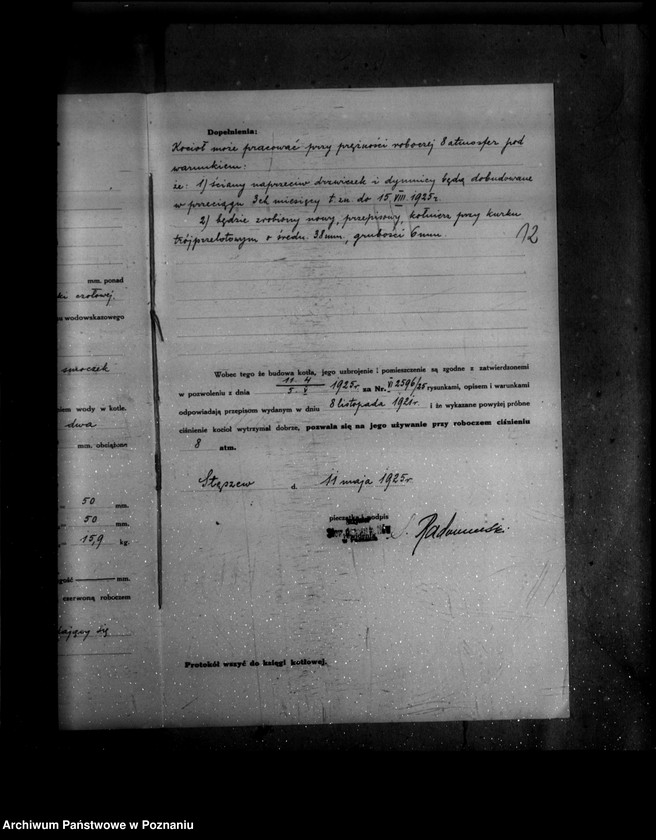 mm. ponad
czołowej
wodowskazowego
smoczek
wody w kotle.
dwa
mm. obciążone
= 50 mm.
= 50 mm.
= 15,9 kg.
mm.
czerwoną roboczem
się
Dopełnienia:
Kocioł może pracować przy prężności roboczej 8 atmosfer pod
warunkiem:
że: 1) ściany naprzeciw drzwiczek i dymnicy będą dobudowane
w przeciągu 3ch miesięcy t. zn. do 15/VIII. 1925r.
2) będzie zrobiony nowy, przepisowy, kołnierz przy kurku
trójprzelotowym o średn. 38mm., grubości 6mm.
12
Wobec tego że budowa kotła, jego uzbrojenie i pomieszczenie są zgodne z zatwierdzonemi
w pozwoleniu z dnia 11. 4 / 5. V 1925r. za Nr. VI 2596/25 rysunkami, opisem i warunkami
odpowiadają przepisom wydanym w dniu 8 listopada 1921r. i że wykazane powyżej próbne
ciśnienie kocioł wytrzymał dobrze, pozwala się na jego używanie przy roboczem ciśnieniu
8 atm.
Stęszew d. 11 maja 1925r.
pieczątka i podpis
w Poznaniu
Protokół wszyć do księgi kotłowej.
Archiwum Państwowe w Poznaniu